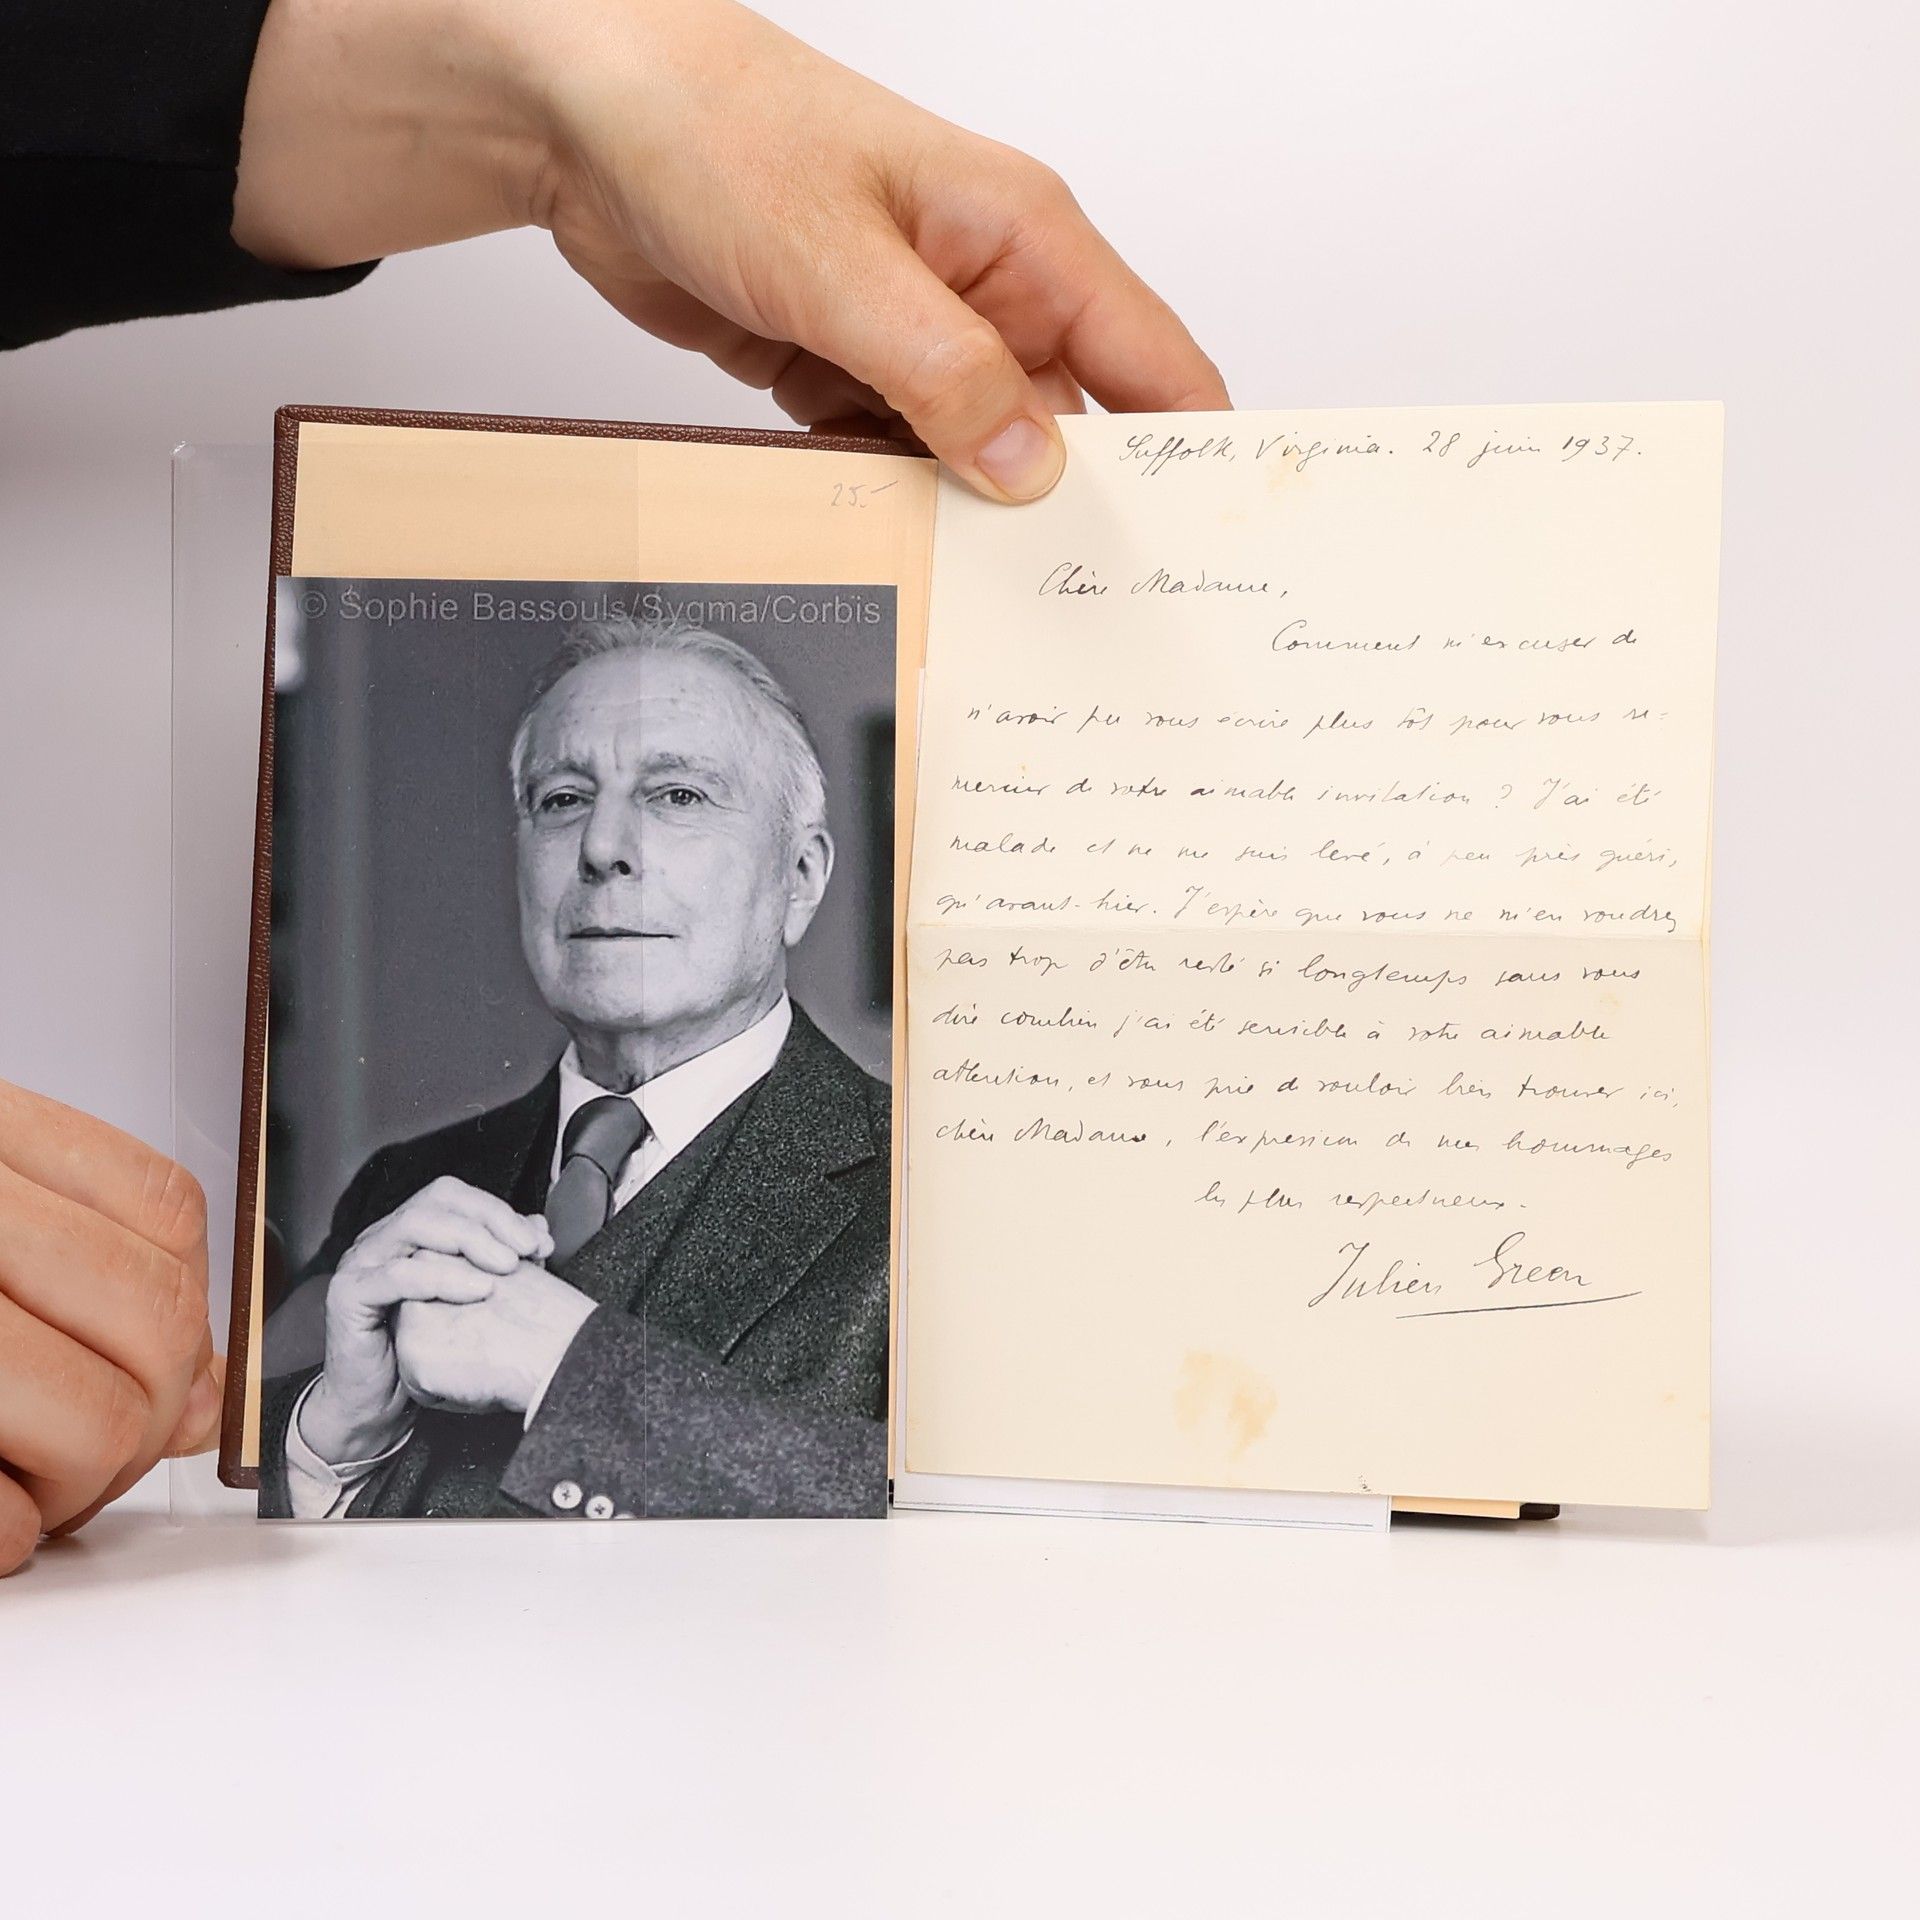 25.-
© Sophie Bassouls/Sygma/Corbis
Suffolk, Virginia. 28 juin 1937.
Chère Madame,
Comment m'excuser de
n'avoir pu vous écrire plus tôt pour vous re-
mercier de votre aimable invitation ? J'ai été
malade et ne me suis levé, à peu près guéri,
qu'avant-hier. J'espère que vous ne m'en voudrez
pas trop d'être resté si longtemps sans vous
dire combien j'ai été sensible à votre aimable
attention, et vous prie de vouloir bien trouver ici,
chère Madame, l'expression de mes hommages
les plus respectueux.
Julien Green